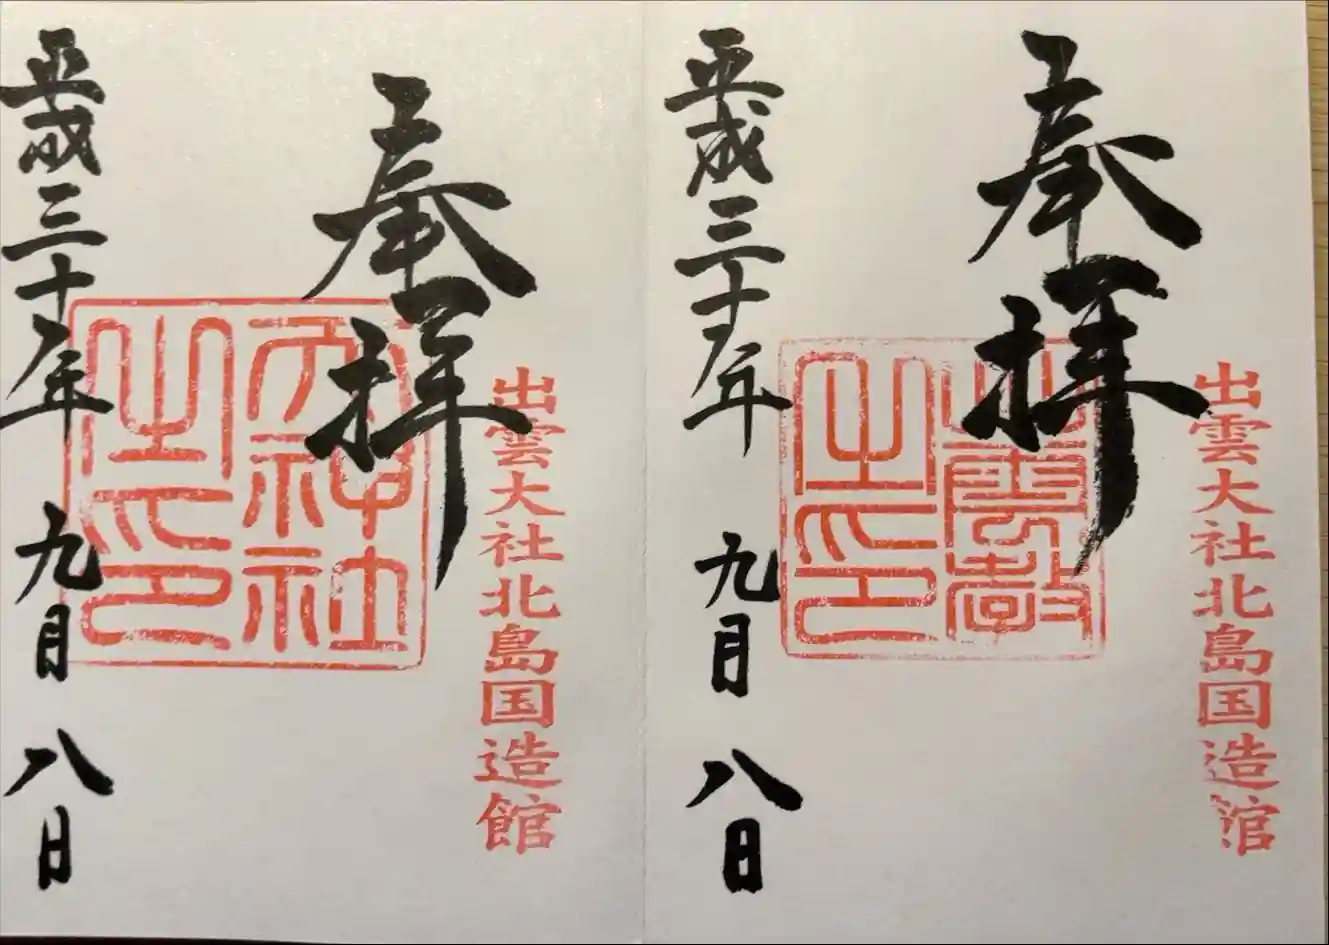 出雲大社北島国造館
奉拝
出雲教之印
平成三十年 九月 八日
出雲大社北島国造館
奉拝
天神社之印
平成三十年 九月 八日